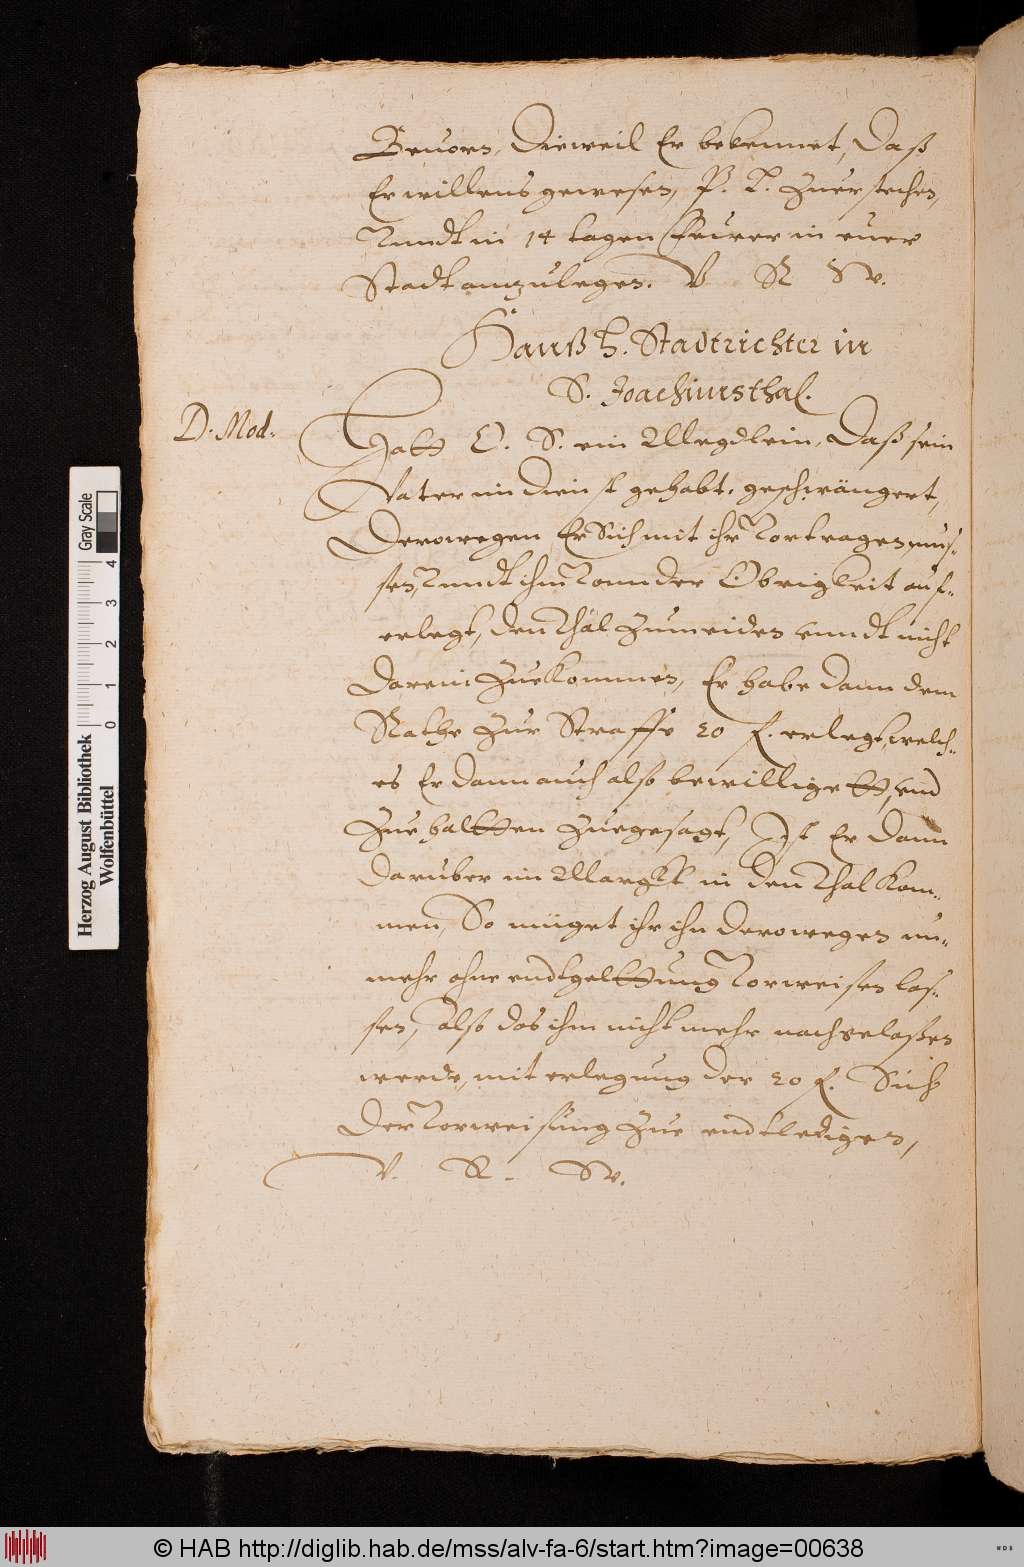 Beuorn, Dieweil Er bekennet, Daß
Er willens gewesen, P. T. Zuerstechen,
Vnndt in 14 tagen Feurer in euer
Stadt anzulegen. V R Sw.
Hannß h. Stadtrichter in
S. Joachimsthal.
D. Mod.
Hatt O. S. ein Megdlein, Daß sein
Vater im dienst gehabt, geschwängert,
Derowegen Er Sich mit ihr Vortragen mus-
sen, Vnndt ihm Vonn der Obrigkeit auf-
erlegt, den Thal Zumeiden vnndt nicht
darein Zuekommen, Er habe dann dem
Rathe Zur Straffe 20 f. erlegt, welch-
es Er dann auch also bewilligett, vnd
Zue haltten Zuegesagt, Ist Er dann
daruber im Marckt in den Thal kom-
men, So müget ihr ihn derowegen nu-
mehr ohne endtgelttung Vorweisen las-
sen, Also das ihm nicht mehr nachgelaßen
werde, mit erlegung der 20 f. Sich
der Vorweisung Zue endtledigen,
V. R. Sw.
Herzog August Bibliothek
Wolfenbüttel
0 1 2 3 4
Gray Scale
© HAB http://diglib.hab.de/mss/alv-fa-6/start.htm?image=00638
WDB